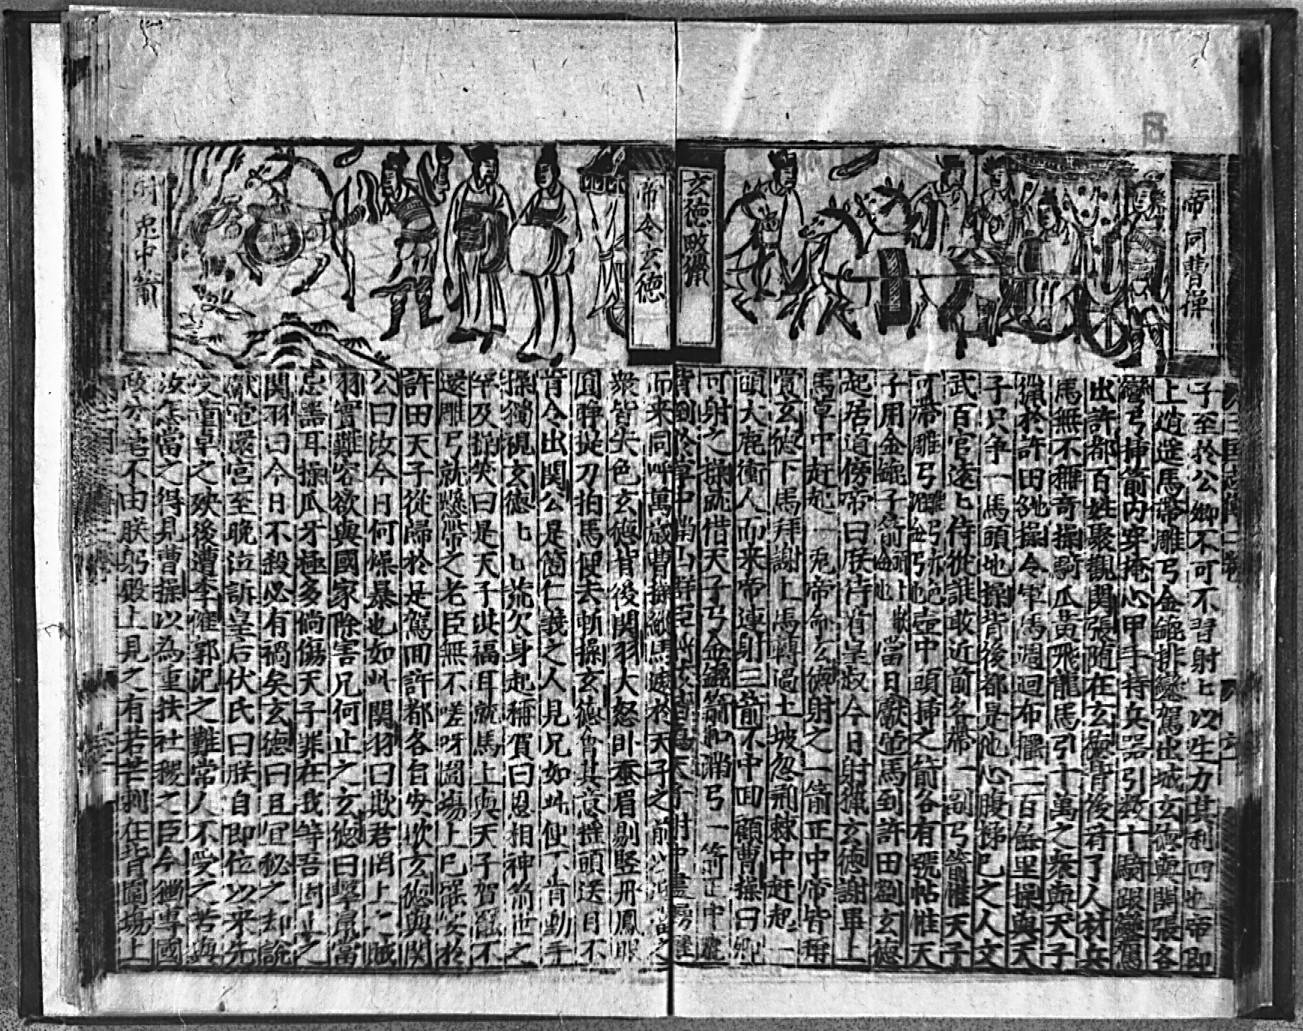 帝同曹操
玄德畋獵
子至於公卿不可不習射匕以生力其利四也帝即
上逍遥馬帶雕弓金鈚排鑾駕出城玄德與關張各
彎弓插箭內穿掩心甲手持兵器引數十騎跟鑾駕
出許都百姓聚觀関張随在玄德背後看了人材兵
馬無不稱奇操騎爪黃飛龍馬引十萬之衆與天子
獵於許田
操令軍馬週迴布擺二百餘里操與天
子只争一馬頭地操背後都是他心腹
之人文
武百官遠匕侍從誰敢近前各帶一副弓箭惟天子
可帶雕弓
壺中頭插之箭各有號帖惟天
子用金鈚子箭
當日獻帝馬到許田劉玄德
起居道傍帝曰朕待看皇叔今日射獵玄德謝畢上
馬草中赶起一兎帝命玄德射之一箭正中帝皆稱
賞玄德下馬拜謝上馬轉過土坡忽荊棘中赶起一
頭大鹿衝人而来帝連射三箭不中回顧曹操曰卿
可射之操就借天子弓金鈚箭扣滿弓一箭正中鹿
背倒於草中
群臣
天子射中
而来同呼萬歲曹操縱馬遮於天子之前
衆皆失色玄德背後関羽大怒卧蚕眉剔竪丹鳳眼
圓睜提刀拍馬便去斬操玄德會其意摇頭送目不
肯令出関公是箇仁義之人見兄如此便不肯動手
操獨視玄德匕匕荒欠身起稱賀曰恩相神箭世之
罕及操笑曰是天子洪福耳就馬上與天子賀罷不
還雕弓就懸帶之老臣無不嗟呀圍場上已罷宴於
許田天子從歸於是駕回許都各自安歇玄德與関
公曰汝今日何燥暴也如此関羽曰欺君罔上之賊
羽實難容欲與國家除害兄何止之玄德曰擊鼠當
忌器耳操爪牙極多倘傷天子罪在我等吾固止之
関羽曰今日不殺必有禍矣玄德曰且宜秘之却說
獻帝還宮至晚泣訴皇后伏氏曰朕自即位以来先
受董卓之殃後遭李傕郭汜之難常人不受之苦與
汝怎當之得見曹操以為重扶社稷之臣今獨專國
政
不由朕躬殿上見之有若芒刺在背圍場上
帝令玄德
射兎中箭